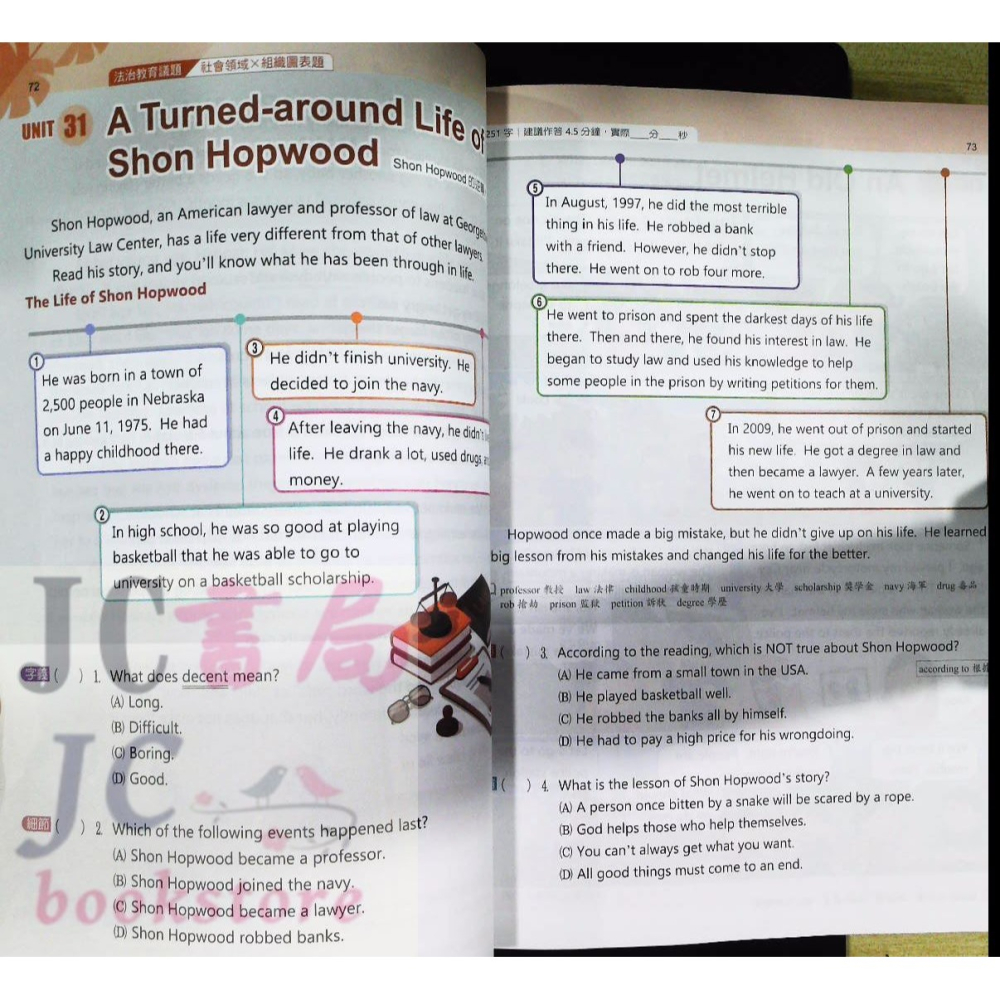 72
法治教育議題 社會領域×組織圖表題
UNIT 31 A Turned-around Life of
Shon Hopwood Shon Hopwood
Shon Hopwood, an American lawyer and professor of law at
University Law Center, has a life very different from that of other lawyers.
Read his story, and you'll know what he has been through in life.
The Life of Shon Hopwood
1 He was born in a town of
2,500 people in Nebraska
on June 11, 1975. He had
a happy childhood there.
3 He didn't finish university. He
decided to join the navy.
4 After leaving the navy, he didn't
life. He drank a lot, used drugs
money.
2 In high school, he was so good at playing
basketball that he was able to go to
university on a basketball scholarship.
字義 ( ) 1. What does decent mean?
(A) Long.
(B) Difficult.
(C) Boring.
(D) Good.
細節 ( ) 2. Which of the following events happened last?
(A) Shon Hopwood became a professor.
(B) Shon Hopwood joined the navy.
(C) Shon Hopwood became a lawyer.
(D) Shon Hopwood robbed banks.
251 字 | 建議作答 4.5 分鐘,實際___分___秒
73
5 In August, 1997, he did the most terrible
thing in his life. He robbed a bank
with a friend. However, he didn't stop
there. He went on to rob four more.
6 He went to prison and spent the darkest days of his life
there. Then and there, he found his interest in law. He
began to study law and used his knowledge to help
some people in the prison by writing petitions for them.
7 In 2009, he went out of prison and started
his new life. He got a degree in law and
then became a lawyer. A few years later,
he went on to teach at a university.
Hopwood once made a big mistake, but he didn't give up on his life. He learned
big lesson from his mistakes and changed his life for the better.
professor 教授 law 法律 childhood 孩童時期 university 大學 scholarship 獎學金 navy 海軍 drug 毒品
rob 搶劫 prison 監獄 petition 訴狀 degree 學歷
( ) 3. According to the reading, which is NOT true about Shon Hopwood?
(A) He came from a small town in the USA.
according to 根據
(B) He played basketball well.
(C) He robbed the banks all by himself.
(D) He had to pay a high price for his wrongdoing.
( ) 4. What is the lesson of Shon Hopwood's story?
(A) A person once bitten by a snake will be scared by a rope.
(B) God helps those who help themselves.
(C) You can't always get what you want.
(D) All good things must come to an end.
JC書局
JC
bookstore